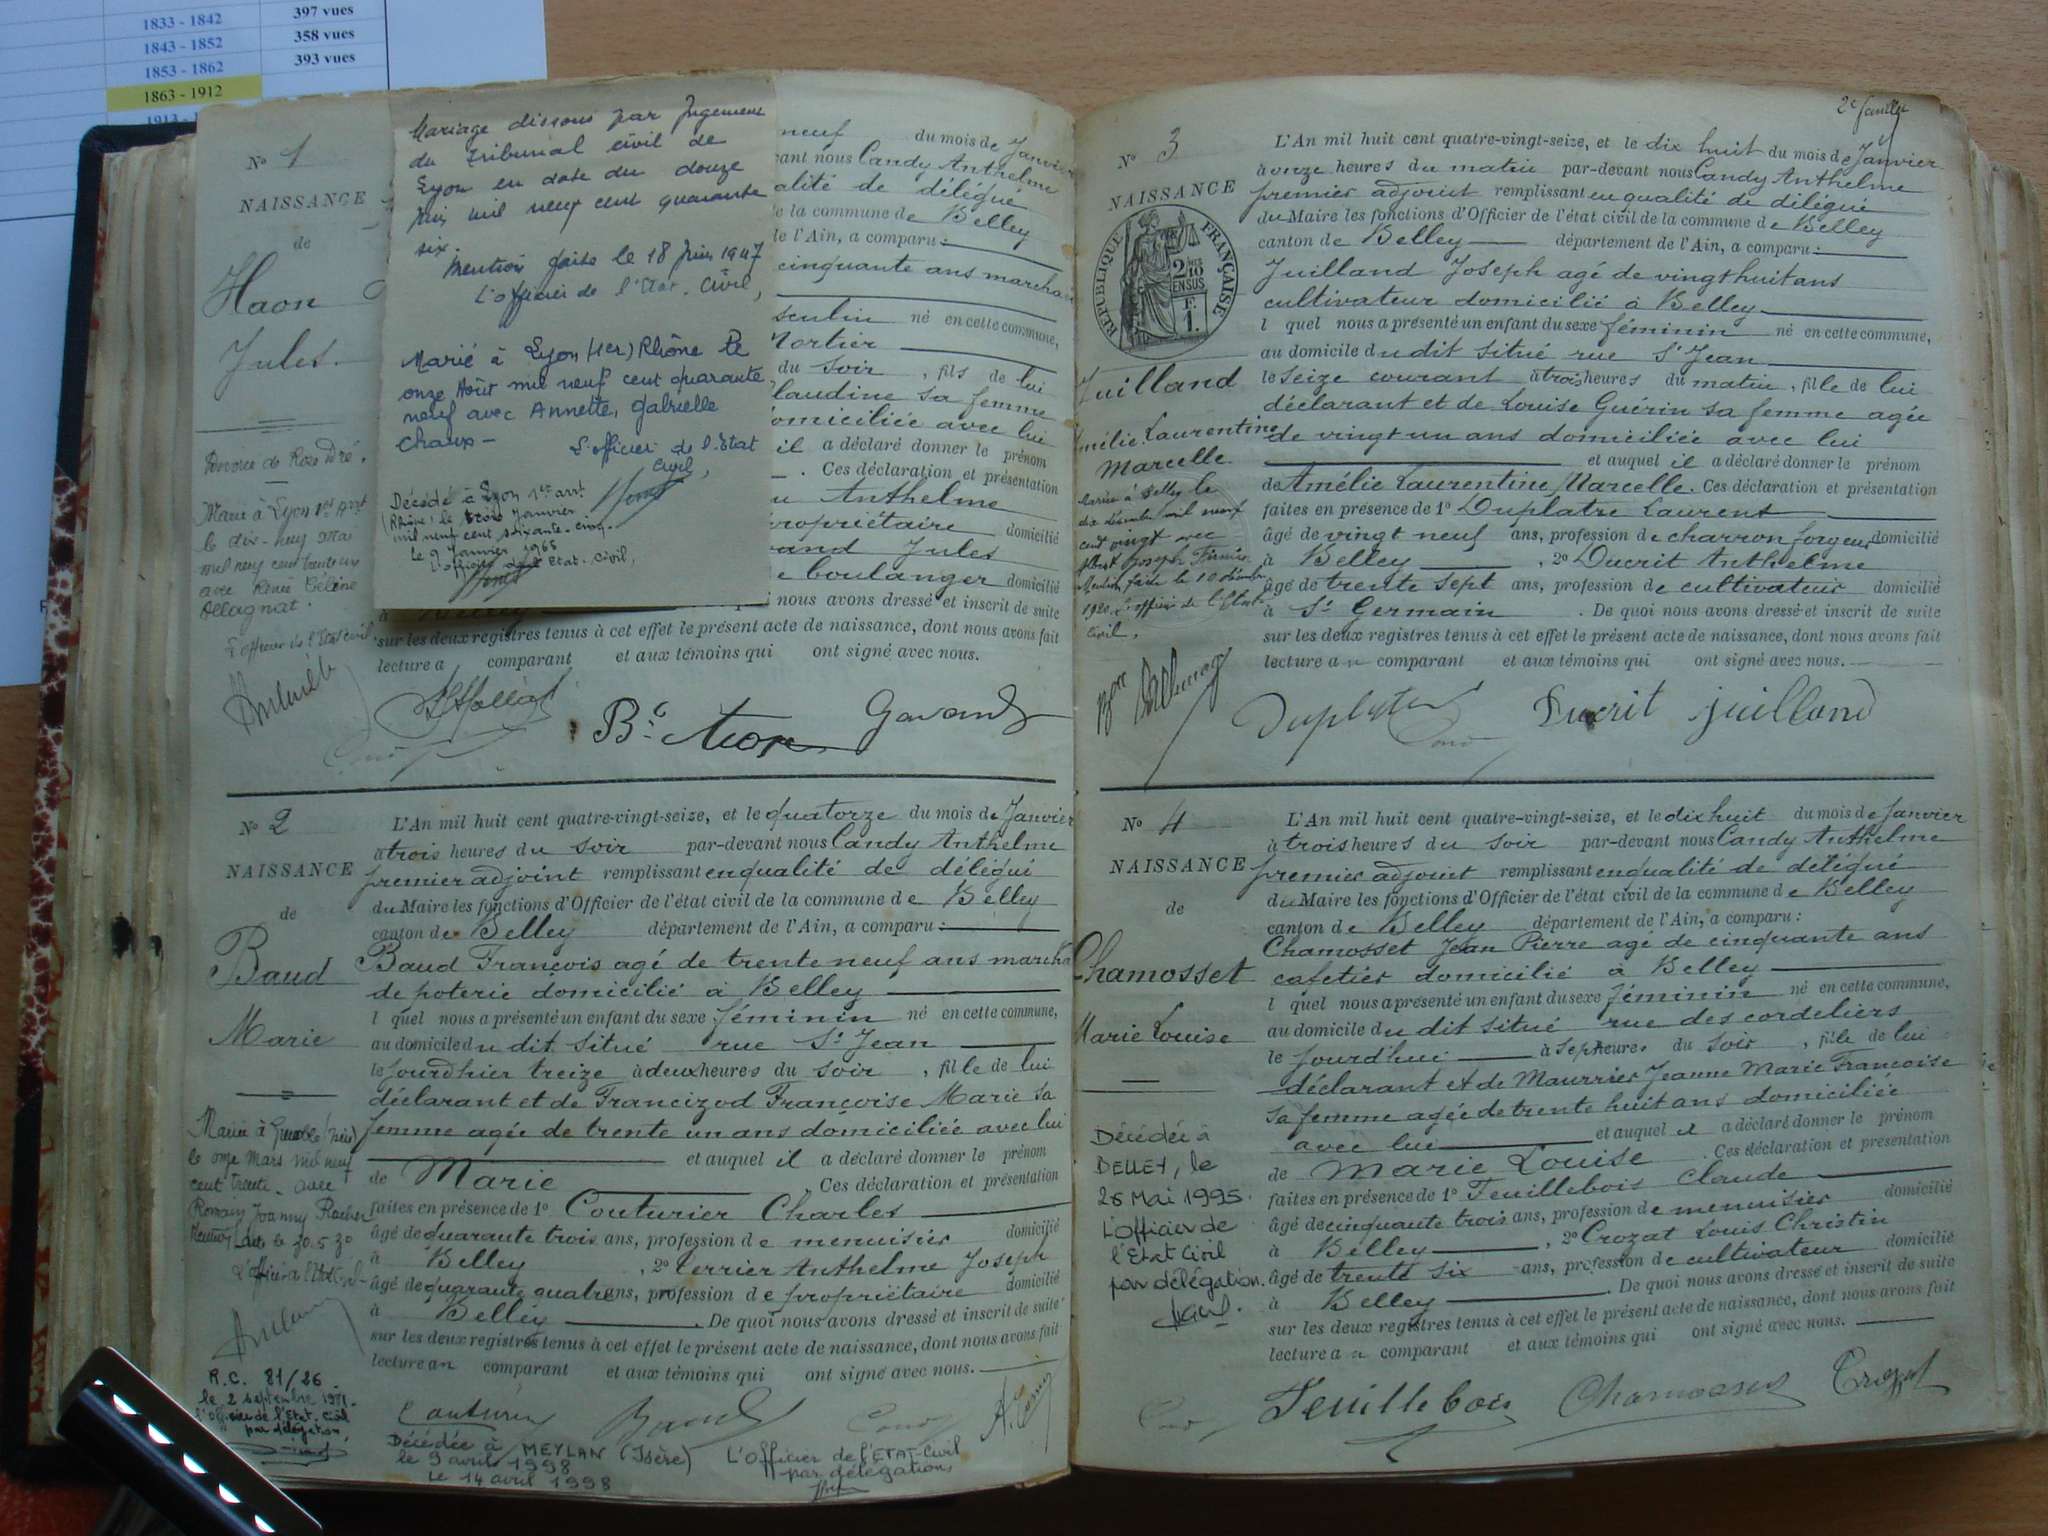 1833 - 1842 397 vues
1843 - 1852 358 vues
1853 - 1862 393 vues
1863 - 1912
1913 -
N° 1
NAISSANCE
de
Haon
Jules.
Divorcé de Rose
Marié à Lyon 1er Arrt
le dix-neuf Mai
mil neuf cent trente
avec Renée Céline
Allagnat.
L'officier de l'Etat civil,
Mariage dissous par Jugement
du Tribunal civil de
Lyon en date du douze
Juin mil neuf cent quarante
six.
Mention faite le 18 Juin 1947
L'officier de l'Etat. Civil,
Marié à Lyon (1er) Rhône le
onze Août mil neuf cent quarante
neuf avec Annette, Gabrielle
Chaux -
L'officier de l'Etat
Civil,
Décédé à Lyon 1er arrt
(Rhône) le trois Janvier
mil neuf cent soixante-cinq.
le 9 Janvier 1965
L'officier de l'Etat. Civil,
neuf du mois de Janvier
vant nous Candy Anthelme
alité de délégué
e la commune de Belley
e l'Ain, a comparu :
cinquante ans marchand
sculin né en cette commune,
Mortier
du soir, fils de lui
laudine sa femme
omiciliée avec lui
il a déclaré donner le prénom
. Ces déclaration et présentation
Anthelme
propriétaire domicilié
rand Jules
e boulanger domicilié
à Belley nous avons dressé et inscrit de suite
sur les deux registres tenus à cet effet le présent acte de naissance, dont nous avons fait
lecture a comparant et aux témoins qui ont signé avec nous.
N° 2
NAISSANCE
de
Baud
Marie
Mariée à Grenoble (Isère)
le onze Mars mil neuf
cent trente - avec
Romain Joanny Rocher
Mention faite le 30.5.30
L'officier de l'Etat Civil
R.C. 81/26
le 2 septembre 1981.
l'Officier de l'Etat. Civil
par délégation,
L'An mil huit cent quatre-vingt-seize, et le quatorze du mois de Janvier
à trois heures du soir par-devant nous Candy Anthelme
premier adjoint remplissant en qualité de délégué
du Maire les fonctions d'Officier de l'état civil de la commune de Belley
canton de Belley département de l'Ain, a comparu :
Baud François agé de trente neuf ans marchand
de poterie domicilié à Belley
l quel nous a présenté un enfant du sexe féminin né en cette commune,
au domicile du dit situé rue St Jean
le jourdhier treize à deux heures du soir, fille de lui
déclarant et de Francizod Françoise Marie sa
femme agée de trente un ans domiciliée avec lui
et auquel il a déclaré donner le prénom
de Marie . Ces déclaration et présentation
faites en présence de 1° Couturier Charles
âgé de quarante trois ans, profession de menuisier domicilié
à Belley , 2° Terrier Anthelme Joseph
âgé de quarante quatre ans, profession de propriétaire domicilié
à Belley . De quoi nous avons dressé et inscrit de suite
sur les deux registres tenus à cet effet le présent acte de naissance, dont nous avons fait
lecture au comparant et aux témoins qui ont signé avec nous.
Décédée à MEYLAN (Isère)
le 9 avril 1998
Le 14 avril 1998
L'Officier de l'ETAT-Civil
par délégation,
2e feuillet
N° 3
NAISSANCE
RÉPUBLIQUE FRANÇAISE
2 DMES 10
EN SUS
F.
1.
Juilland
Amélie Laurentine
Marcelle
Mariée à Belley le
dix décembre mil neuf
cent vingt avec
Albert Joseph
Mention faite le 10 décembre
1920. L'officier de l'Etat
Civil,
L'An mil huit cent quatre-vingt-seize, et le dix huit du mois de Janvier
à onze heures du matin par-devant nous Candy Anthelme
premier adjoint remplissant en qualité de délégué
du Maire les fonctions d'Officier de l'état civil de la commune de Belley
canton de Belley département de l'Ain, a comparu :
Juilland Joseph agé de vingt huit ans
cultivateur domicilié à Belley
l quel nous a présenté un enfant du sexe féminin né en cette commune,
au domicile du dit situé rue St Jean
le seize courant à trois heures du matin, fille de lui
déclarant et de Louise Guérin sa femme agée
de vingt un ans domiciliée avec lui
et auquel il a déclaré donner le prénom
de Amélie Laurentine Marcelle. Ces déclaration et présentation
faites en présence de 1° Duplatre Laurent
âgé de vingt neuf ans, profession de charron forgeur domicilié
à Belley , 2° Ducrit Anthelme
âgé de trente sept ans, profession de cultivateur domicilié
à St Germain . De quoi nous avons dressé et inscrit de suite
sur les deux registres tenus à cet effet le présent acte de naissance, dont nous avons fait
lecture au comparant et aux témoins qui ont signé avec nous.
Ducrit Juilland
N° 4
NAISSANCE
de
Chamosset
Marie Louise
Décédée à
BELLEY, le
26 Mai 1995.
L'officier de
l'Etat Civil
par délégation.
L'An mil huit cent quatre-vingt-seize, et le dix huit du mois de Janvier
à trois heures du soir par-devant nous Candy Anthelme
premier adjoint remplissant en qualité de délégué
du Maire les fonctions d'Officier de l'état civil de la commune de Belley
canton de Belley département de l'Ain, a comparu :
Chamosset Jean Pierre agé de cinquante ans
cafetier domicilié à Belley
l quel nous a présenté un enfant du sexe féminin né en cette commune,
au domicile du dit situé rue des cordeliers
le jourd'hui à sept heures du soir, fille de lui
déclarant et de Maurrier Jeanne Marie Françoise
sa femme agée de trente huit ans domiciliée
avec lui et auquel il a déclaré donner le prénom
de Marie Louise . Ces déclaration et présentation
faites en présence de 1° Feuillebois Claude
âgé de cinquante trois ans, profession de menuisier domicilié
à Belley , 2° Crozat Louis Christin
âgé de trente six ans, profession de cultivateur domicilié
à Belley . De quoi nous avons dressé et inscrit de suite
sur les deux registres tenus à cet effet le présent acte de naissance, dont nous avons fait
lecture au comparant et aux témoins qui ont signé avec nous.
Feuillebois Chamosset Crozat